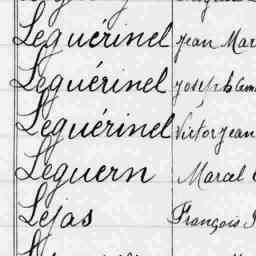 Leguérinel Jean Mar
Leguérinel Joseph Clem
Leguérinel Victor Jean
Leguern Marcel
Lejas François